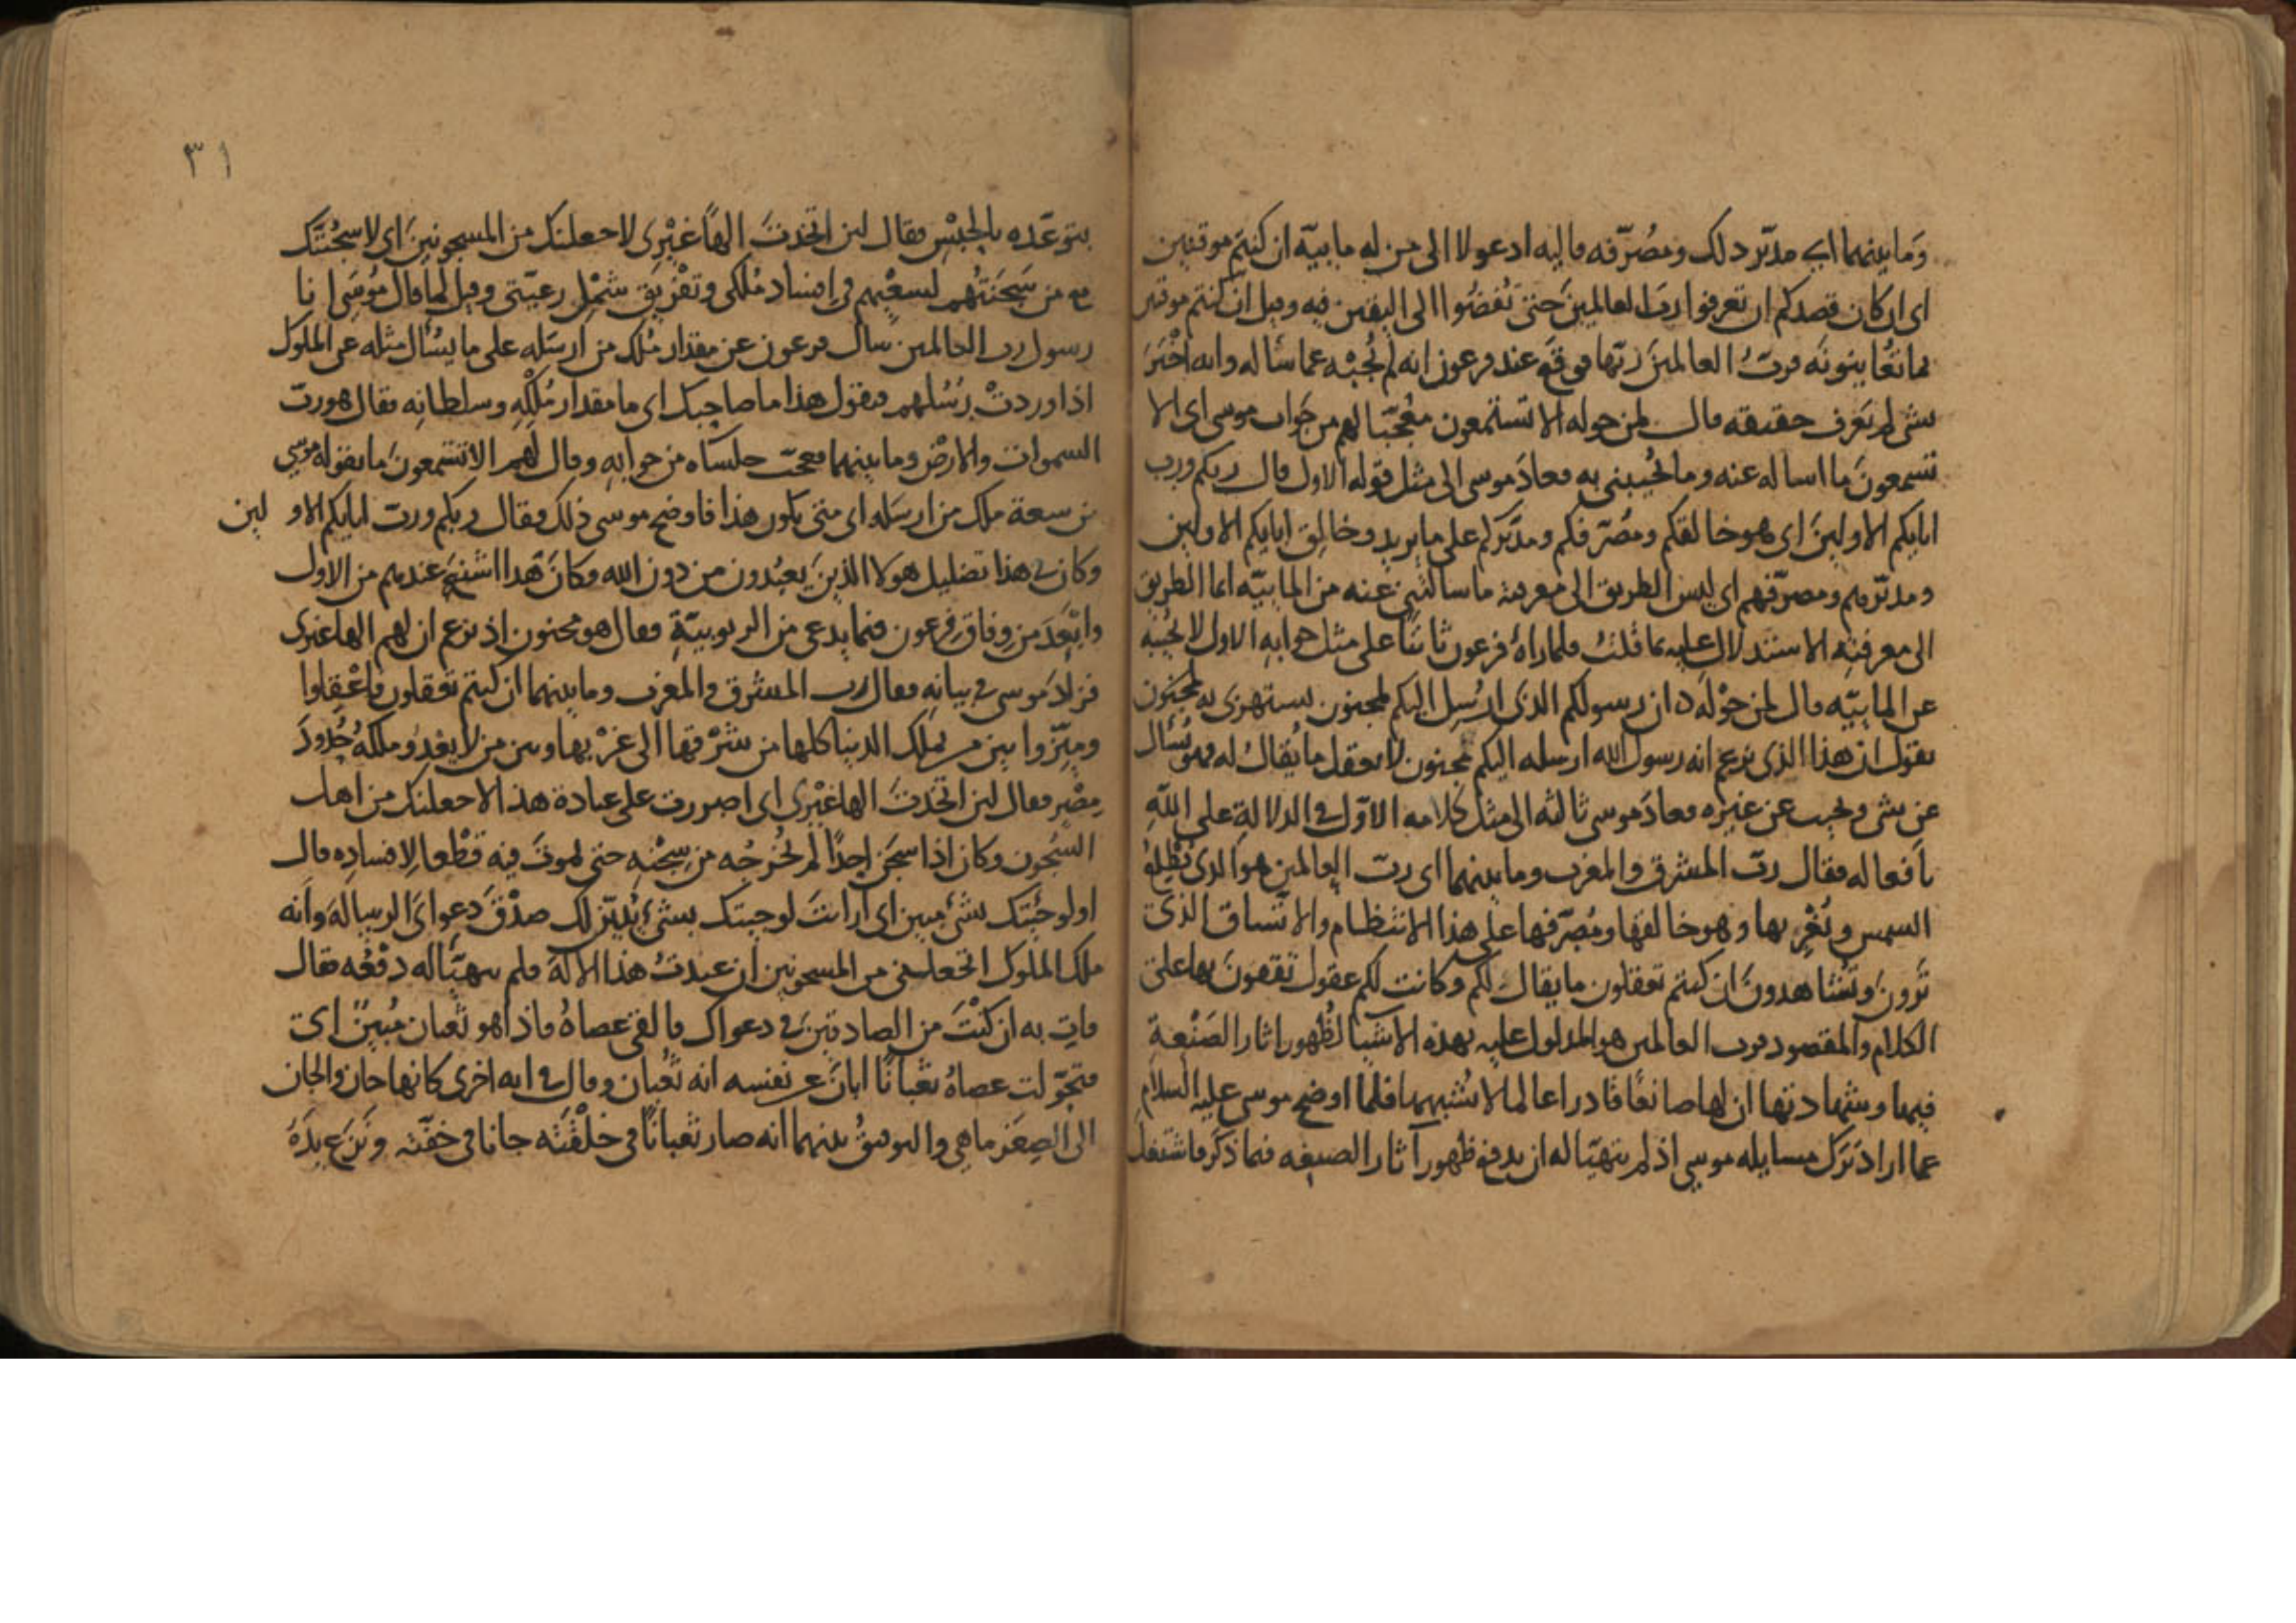 وَما بينهما اى مدبّر ذلك ومصُرّفه فاليه ادعو لا الى من له مايية ان كنتم موقنين
اى ان كان قصدكم ان تعرفوا ربّ العالمينَ حتى تُفضُوا الى اليقين فيه وقيل ان كنتم موقنين
بما تُعاينونَه فربُّ العالمينَ ربّها فوقعَ عند فرعون انه لم يُجبْه عما سأله وانه اخْبَرَ
بشى لم يَعرف حقيقته قال لمن حوله الا تستمعون مُعَجّبا لهم من جَواب موسى اى الا
تسمعونَ ما اساله عنه وما يُجيبنى به فعادَ موسى الى مثل قوله الاول قال ربكم ورب
ابايكم الاولينَ اى هو خالقكم ومُصّرفكم ومدَبّركم على ما يريد وخالِق ابايكم الاولين
ومدبّرهم ومصرّفهم اى ليس الطريق الى معرفة ما سالتنى عنه من المايية انما الطريق
الى معرفتِه الاستدلال عليه بما قلتُ فلما راهُ فرعون ثابتًا على مثل جوابهِ الاول لا يُجيبه
عن المايّيه قال لمن حوْلَه ان رسولكم الذى ارُسِل اليكم لمجنون يستهزى به لمجنون
يقول ان هذا الذى يزعم انه رسول الله ارسله اليكم مجنون لا يعقل ما يُقاك له فهو يُسأل
عن شى ويجيب عن غيره فعادَ موسى ثالثه الى مثل كلامه الاوّل فى الدلالةِ على اللّهِ
بافعاله فقال ربّ المشرق والمغرب وما بينهما اى ربّ العالمين هو الذى يُطْلِعُ
الشمس ويُغْرِبها وهو خالقها ومُصرّفها على هذا الانتظام والاتّساق الذى
تَرونَ وتُشاهدونَ ان كنتم تعقلون ما يقاك لكم وكانت لكم عقول تفقهونَ بها على
الكلام والمقصود فرب العالمين هو المدلول عليه بهذه الاشيا لظُهور اثار الصَنْعةِ
فيها وشهادتها ان لها صانعًا قادرا عالما لا يُشبهها فلما اوضح موسى عليه السلام
عما ارادَ تَرك مسايله موسى اذ لم يتهيّا له ان يدفع ظهور آثار الصنعه فيما ذكر فاشتغلَ
يتوعّده بالحبْسِ فقال لين اتخذتَ الهاً غيْرى لاجعلنك من المسجونينَ اى لاسجُنَنَّك
مع من سَجَنتُهم لسعْيهم فى اِفساد مُلكى وتفْريَق شمْلِ رعيّتى وقيل لما قال مُوسَى انا
رسول رب العالمين سال فرعون عن مقدار مُلك من ارسَله على ما يُسأل مثله عن الملوك
اذا وردتْ رُسُلهم فيقول هذا ما صاحبك اى ما مقدار مُلكِهِ وسلطانِه فقال هو ربّ
السموات والارض وما بينهما فعجبَ جلساه من جوابهِ وقال لهم الا تستمعونَ ما يقوله موسى
من سعة ملك من ارسَله اى متى يكون هذا فاوضح موسى ذلك فقال ربكم ورب ابايكم الاولين
وكان فى هذا تضليل هولا الذينَ يَعبُدون من دون الله فكانَ هَذا اشنعَ عندهم من الاول
وابْعَدَ من وِفاق فِرعون فيما يدعى من الربوبيّةِ فقال هو مجنون اذ يزعم ان لهم الها غيرى
فزادَ موسى فى بيانِهِ فقال رب المشرق والمغرب وما بينهما ان كنتم تعقلون فاعْقِلوا
وميّزوا بين من يملك الدنيا كلها من شرْقها الى غرْبها وبين من لا يعْدو ملكهُ حُدودَ
مِصْر فقال لين اتخذتَ الها غيْرى اى اصررت على عبادة هذا لاجعلنك من اهل
السُجون وكان اذا سجَن احدًا لم يُخرجُه من سِجْنِهِ حتى يموتَ فيه قطْعا لافسادِه قال
اولو جئتك بشئ مبين اى ارايتَ لو جيتك بشئ يُبَيّن لك صدْقَ دعواىَ الرسالةَ وانه
ملك الملوك اتجعلنى من المسجونين ان عبدتُ هذا الالهَ فلم يتهيّا له دفْعُه فقال
فاتِ به ان كنْتَ من الصادقينَ فى دعواك فالقى عصاهُ فاذا هو ثعبان مُبينٌ اى
فتحَوّلت عصاهُ ثعبانًا ابانَ عن نفسه انه ثُعْبان وقال فى ايه اخرى كانها جان والجان
الى الصِغَر ما هى والتوفيقُ بينهما انه صار ثعبانًا فى خلْقتَه جانا فى خفّته ونَزَع يدَهُ
٣١